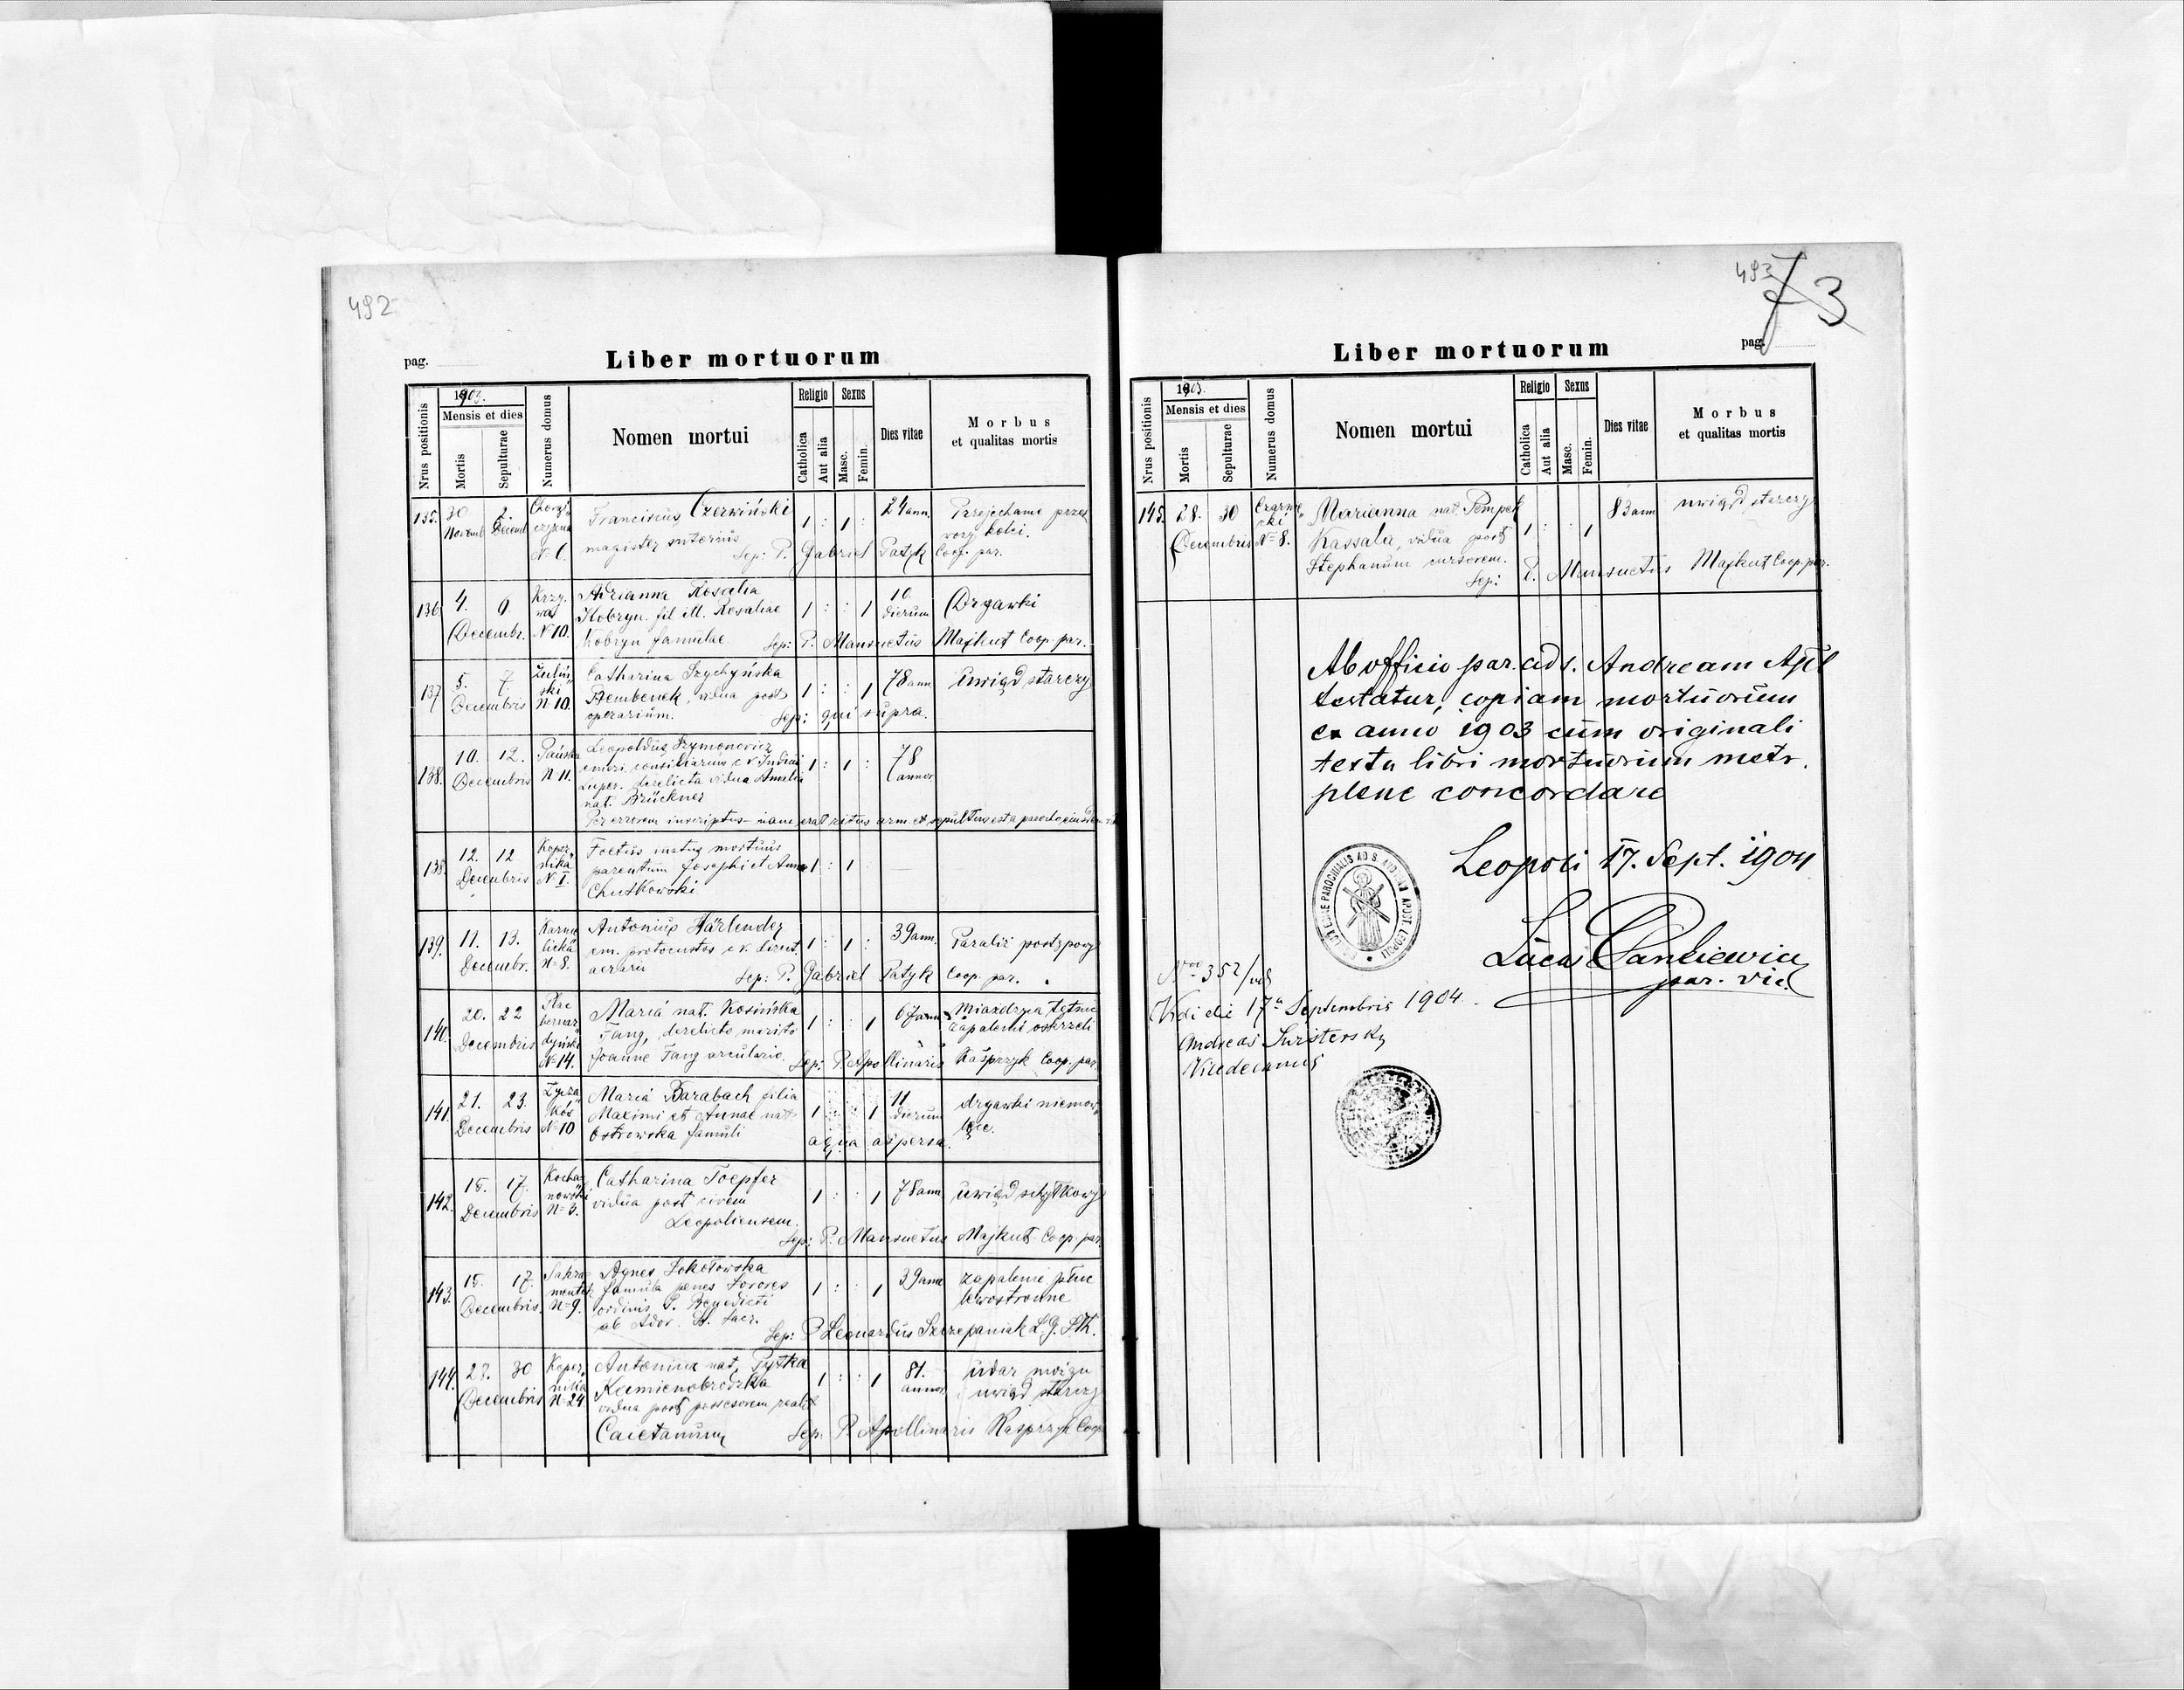 492
pag.
Liber mortuorum
Nrus positionis
1903.
Mensis et dies
Mortis
Sepulturae
Numerus domus
Nomen mortui
Religio
Catholica
Aut alia
Sexus
Masc.
Femin.
Dies vitae
Morbus
et qualitas mortis
135. 30 Novemb 2. Decemb N 6.
Franciscus Czerwiński
magister sutorius
1 : 1 : 24 ann.
Przejechanie przez
wozy kolei.
Sep: P. Gabriel Patyk Coop. par.
136 4. 6 Decembr. Krzy-
wa
N 10.
Adrianna Rosalia
Kobryn fil ill. Rosaliae
Kobryn famulae
1 : : 1 10 dierum
Drgawki
Sep: P. Mansuetus Majkut Coop. par.
137 5. 7. Decembris Zieliń-
ski
N 10.
Catharina Szychyńska
Stembenek, vidua post
operarium.
1 : : 1 78 ann
Uwiąd starczy
Sep: qui supra.
138. 10. 12. Decembris Pańska
N 11.
Leopoldus Szymonowicz
emer. consiliarius c k Judicii
super. derelicta vidua Amelia
nat. Brückner
1 : 1 : 78 annor
Per errorem inscriptus – nam erat ritus arm et sepultus est a
138. 12. 12 Decembris Koper-
nika
N I.
Foetus inatus mortuus
parentum Josephi et Anna
Chutkowski
1 : 1
139. 11. 13. Decembr. Karme
licka
N 8.
Antonius Härlender
em. protocustos c k direct.
aerarii
1 : 1 : 39 ann.
Paraliż postępowy
Sep: P. Gabriel Patyk Coop. par.
140. 20. 22 Decembris
bernar-
dyński
N 14.
Maria nat. Kosińska
Fang, derelicto marito
Joanne Fang arculario.
1 : : 1 67 ann
Miażdżyca tętnic
zapalenie oskrzeli
Sep: P. Apollinaris Kasprzyk Coop. par.
141. 21. 23. Decembris Łycza-
ków
N 10
Maria Barabach filia
Maximi et Annae nat.
Ostrowska famuli
1 : : 1 11 dierum
drgawki niemow-
lęce.
aqua aspersa
142. 15. 17. Decembris Kocha-
nowski
N 3.
Catharina Toepfer
vidua post civem
Leopoliensem.
1 : : 1 78 ann
uwiąd schyłkowy
Sep: P. Mansuetus Majkut Coop. par.
143. 15. 17. Decembris. Sakra-
mentek
N 9.
Agnes Sokołowska
famula penes Sorores
ordinis S. Benedicti
ab Ador. SS. Sacr.
1 : : 1 39 ann
zapalenie płuc
lewostronne
Sep: P Leonardus Szczepaniak
144. 28. 30 Decembris Koper-
nika
N 24
Antonina nat. Pystka
Kamienobrodzka
vidua post possesorem realit
Caietanum
1 : : 1 81. annor
udar mózgu
uwiąd starczy
Sep: P. Apollinaris Kasprzyk Coop
493
73
pag.
Liber mortuorum
Nrus positionis
1903.
Mensis et dies
Mortis
Sepulturae
Numerus domus
Nomen mortui
Religio
Catholica
Aut alia
Sexus
Masc.
Femin.
Dies vitae
Morbus
et qualitas mortis
145. 28. 30 Decembris Czarne-
cki
N 8.
Marianna nat. Pempek
Kassala, vidua post
Stephanum cursorem.
1 : : 1 83 ann
uwiąd starczy
Sep: P. Mansuetus Majkut Coop. par.
Ab officio par. ad s. Andream Apl
testatur, copiam mortuorum
ex anno 1903 cum originali
textu libri mortuorum metr.
plene concordare
Leopoli 17. Sept. 1904
Lucas Dankiewicz
par. vic.
Nro 352/
Vidi die 17a Septembris 1904
Andreas
Vicedecanus